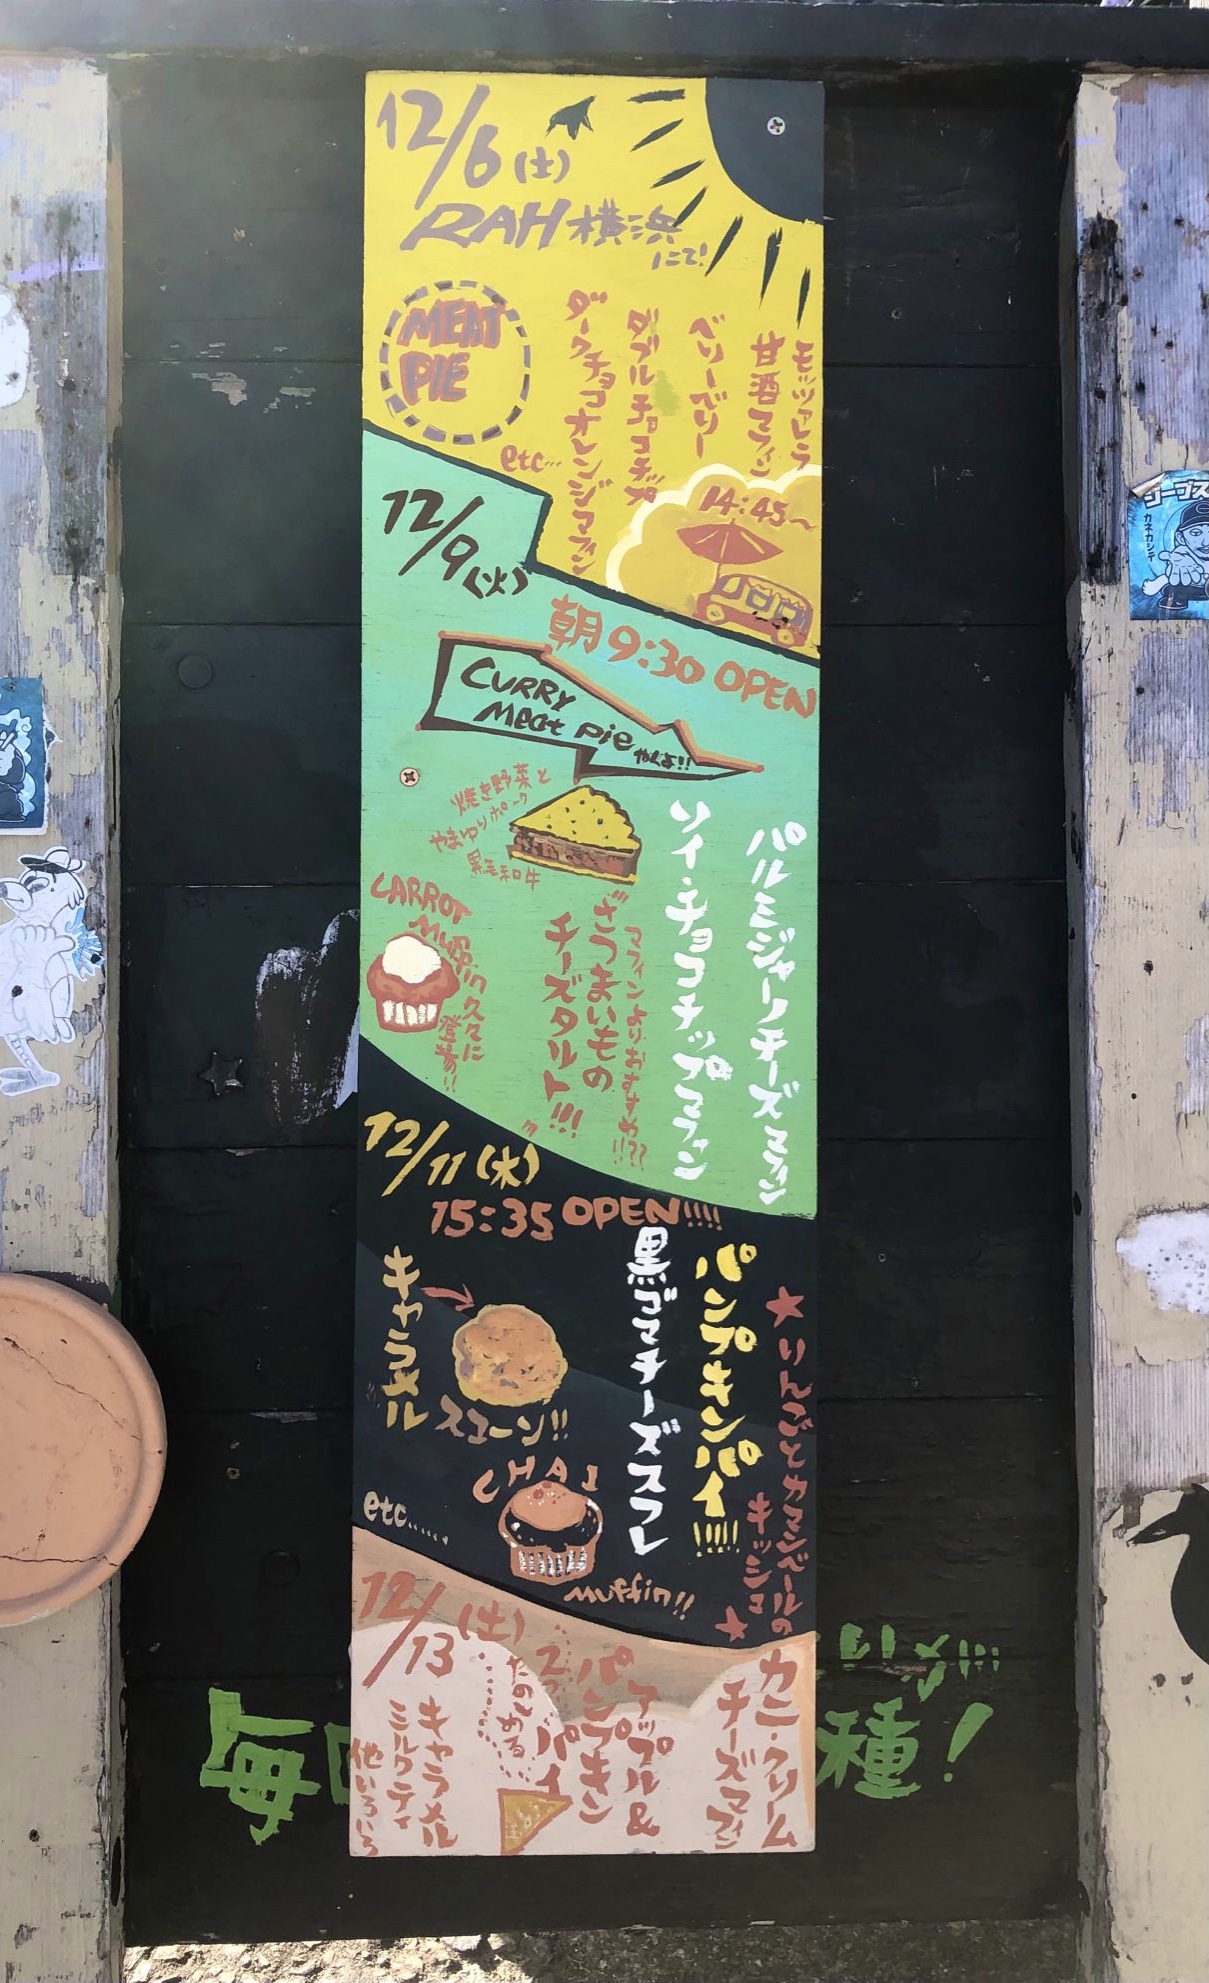 12/6(土)
RAH横浜
にて!
MEAT
PIE
モッツァレラ
甘酒マフィン
ベリーベリー
ダブルチョコチップ
ダークチョコオレンジマフィン
etc…
14:45〜
12/9(火)
朝9:30 OPEN
CURRY
Meat pie
やくよ!!
焼き野菜と
やまゆりポーク
黒毛和牛
パルミジャーノチーズマフィン
ソイ・チョコチップマフィン
マフィンよりおすすめ!!??
さつまいもの
チーズタルト!!!
CARROT
Muffin
久々に
登場!!
12/11(木)
15:35 OPEN!!!!
★りんごとカマンベールの
キッシュ★
パンプキンパイ!!!!
黒ゴマチーズスフレ
キャラメル
スコーン!!
CHAI
muffin!!
etc……
12/13(土)
カニ・クリーム
チーズマフィン
アップル&
パンプキン
パイ
2つ
たのしめる
キャラメル
ミルクティ
他いろいろ
毎
種!
ジーゴス
カネカシテ